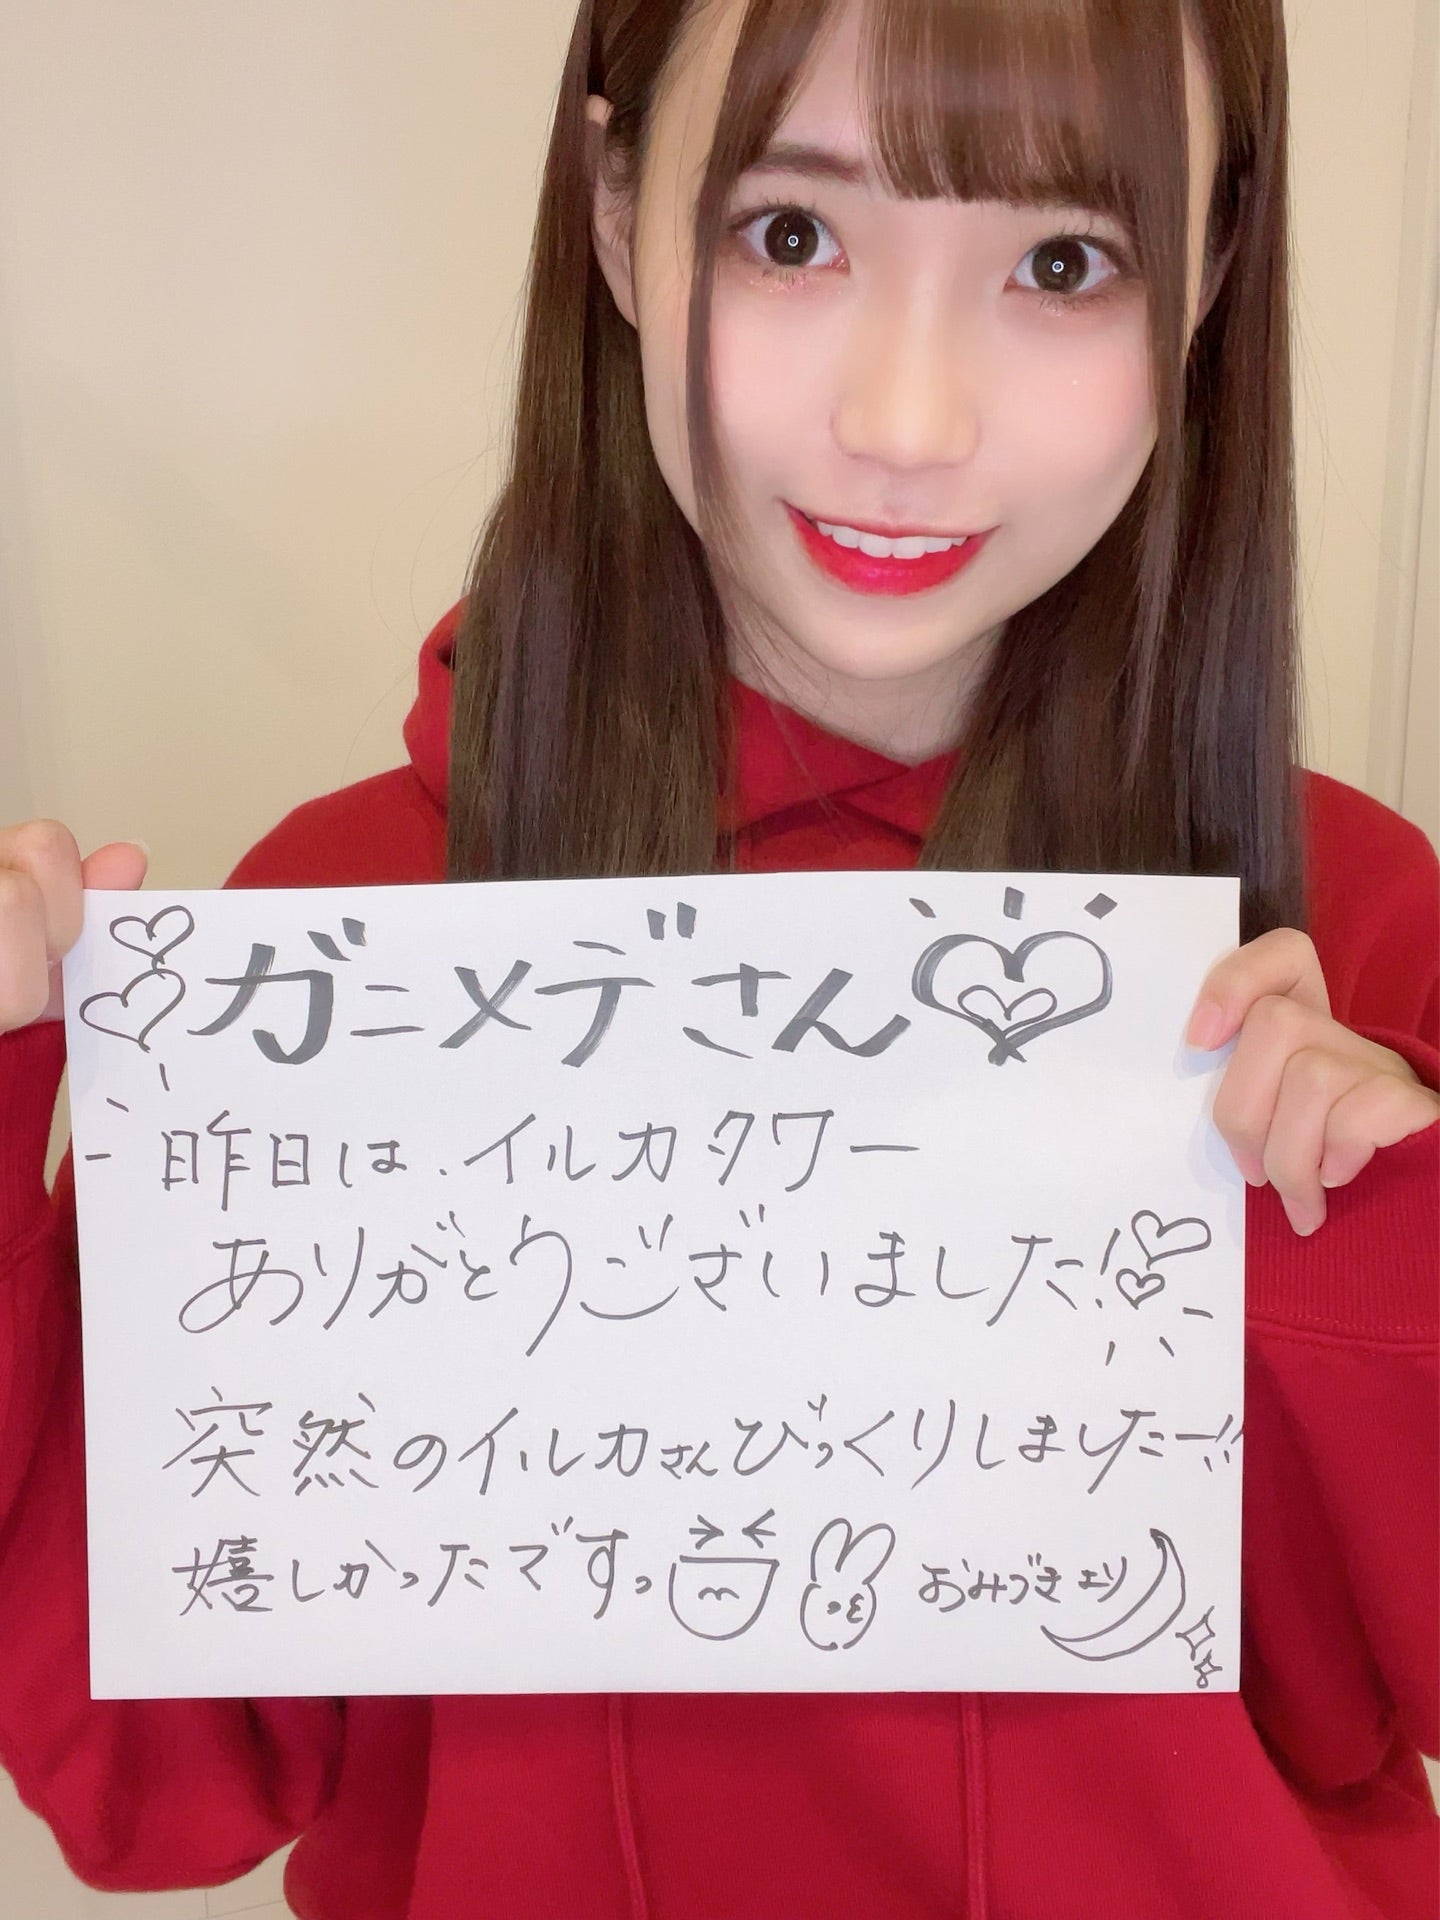 ガニメデさん
昨日は、イルカタワー
ありがとうございました!
突然のイルカさんびっくりしましたー!!
嬉しかったです。
おみづきより